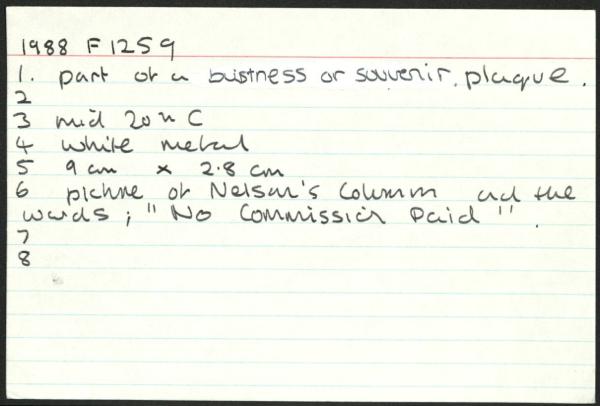 1988 F1259
1. part of a business or souvenir plaque.
2
3 mid 20th C
4 white metal
5 9 cm x 2.8 cm
6 picture of Nelson's Column and the
words; "No Commission Paid".
7
8